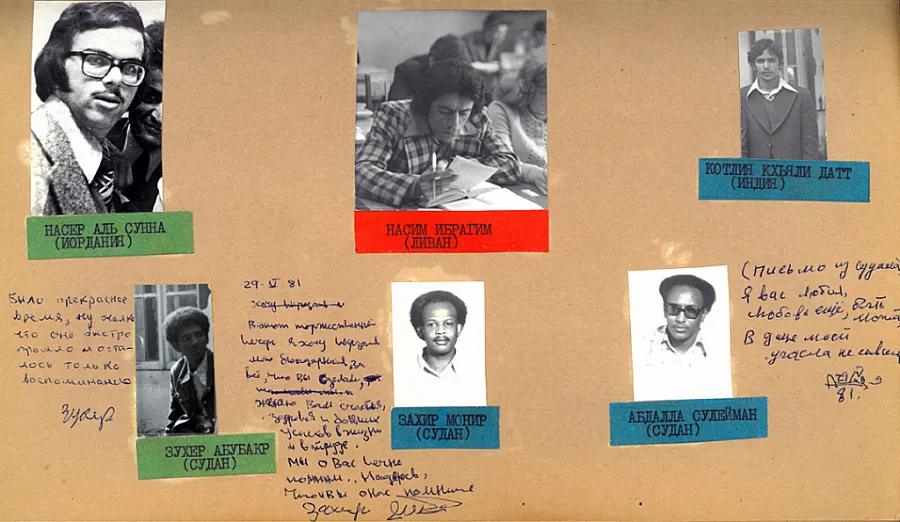 НАСЕР АЛЬ СУННА
(ИОРДАНИЯ)
НАСИМ ИБРАГИМ
(ЛИВАН)
КОТЛИЯ КХЬЯЛИ ДАТТ
(ИНДИЯ)
Было прекрасное
время, ну жалко
что оно быстро
прошло и оста-
лось только
воспоминание
Зухер
ЗУХЕР АБУБАКР
(СУДАН)
29. VI 81
Хочу
В этот торжественный
вечер я хочу
за
всё, что Вы сделали,
желаю Вам счастья,
здоровья и больших
успехов в жизни
и в труде.
Мы о Вас
помним. Надеюсь,
что и Вы о нас помните
Захир
ЗАХИР МОНИР
(СУДАН)
АБДАЛЛА СУЛЕЙМАН
(СУДАН)
(Письмо из
Я вас любил,
любовь ещё, быть может
В душе моей
угасла не совсем
81.